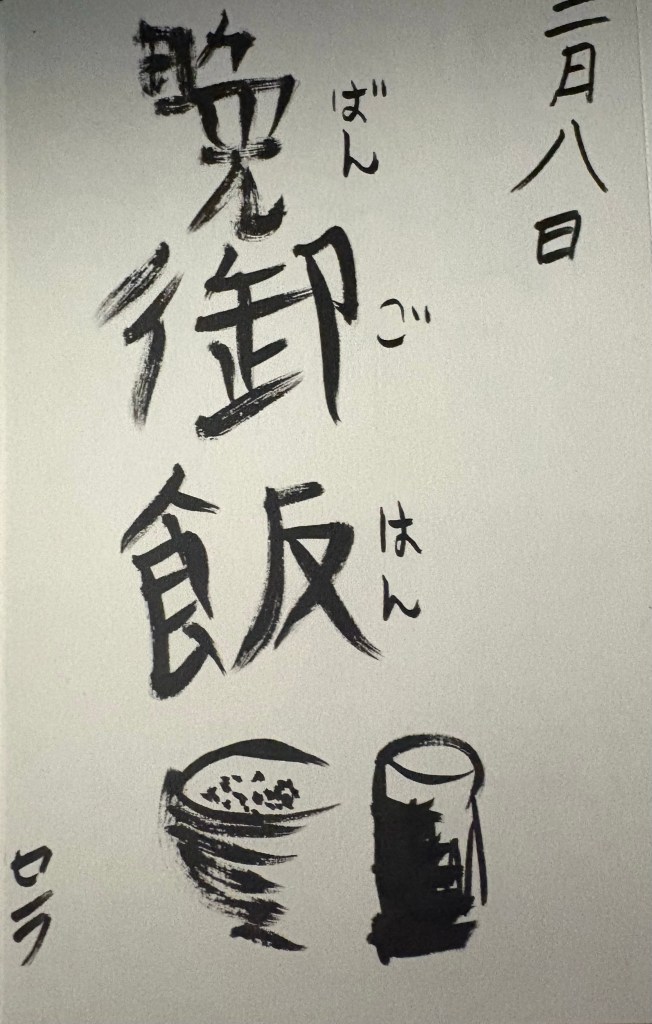 二月八日
ばんごはん
晩御飯
ロラ